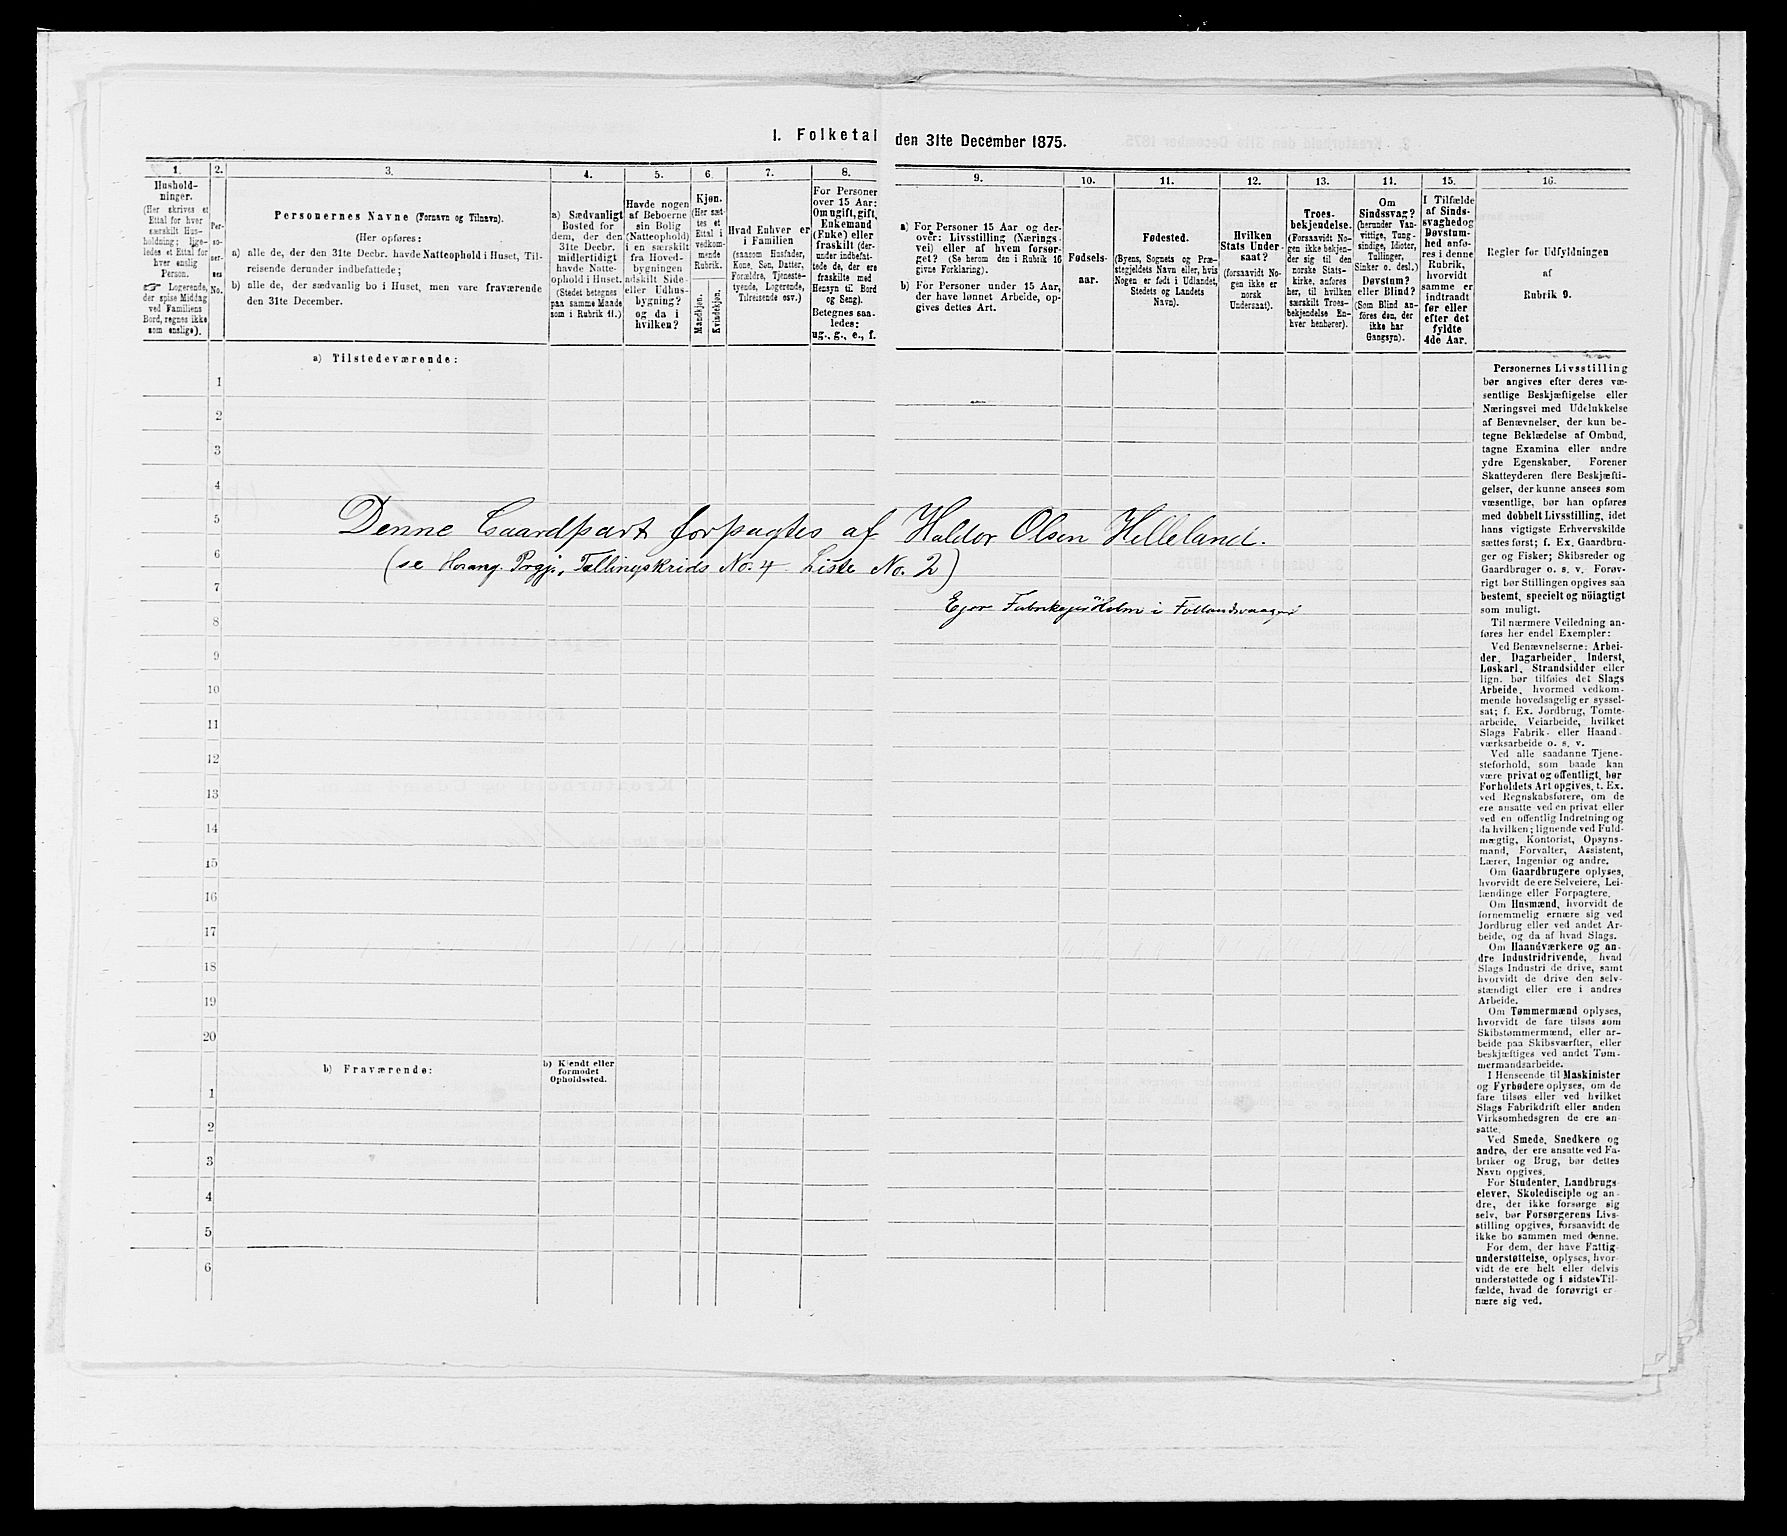 1. Folketal den 31te December 1875.
1. 2. 3. 4. 5. 6. 7. 8. 9. 10. 11. 12. 13. 14. 15. 16.
Hushold-
ninger.
(Her skrives et
Ettal for hver
særskilt Hus-
holdning; lige-
ledes et Ettal for
hver enslig
Person.
☞ Logerende,
der spise Middag
ved Familiens
Bord, regnes ikke
som enslige).
Per-
so-
ner-
nes
No.
Personernes Navne (Fornavn og Tilnavn).
(Her opføres:
a) alle de, der den 31te Decbr. havde Natteophold i Huset, Til-
reisende derunder indbefattede;
b) alle de, der sædvanlig bo i Huset, men vare fraværende
den 31te December.
a) Sædvanligt
Bosted for
dem, der den
31te Decbr.
midlertidigt
havde Natte-
ophold i Huset.
(Stedet betegnes
paa samme Maade
som i Rubrik 11.)
Havde nogen
af Beboerne
sin Bolig
(Natteophold)
i en særskilt
fra Hoved-
bygningen
adskilt Side-
eller Udhus-
bygning?
og da i
hvilken?
Kjøn.
(Her sæt-
tes et
Ettal i
vedkom-
mende
Rubrik.
Mandkjøn.
Kvindekjøn.
Hvad Enhver er
i Familien
(saasom Husfader,
Kone, Søn, Datter,
Forældre, Tjeneste-
tyende, Logerende,
Tilreisende osv.)
For Personer
over 15 Aar:
Om ugift, gift,
Enkemand
(Enke) eller
fraskilt (der-
under indbefat-
tede de, der ere
fraskilte med
Hensyn til Bord
og Seng).
Betegnes saa-
ledes:
ug., g., e., f.
a) For Personer 15 Aar og der-
over: Livsstilling (Nærings-
vei) eller af hvem forsør-
get? (Se herom den i Rubrik 16
givne Forklaring).
b) For Personer under 15 Aar,
der have lønnet Arbeide, op-
gives dettes Art.
Fødsels-
aar.
Fødested.
(Byens, Sognets og Præ-
stegjeldets Navn eller, hvis
Nogen er født i Udlandet,
Stedets og Landets
Navn).
Hvilken
Stats Under-
saat?
(forsaavidt No-
gen ikke er
norsk
Undersaat).
Troes-
bekjendelse.
(Forsaavidt No-
gen ikke bekjen-
der sig til den
norske Stats-
kirke, anføres
her, til hvilken
særskilt Troes-
bekjendelse En-
hver henhører).
Om
Sindssvag?
(herunder Van-
vittige, Tung-
sindige, Idioter,
Tullinger,
Sinker o. desl.)
Døvstum?
eller Blind?
(Som Blind an-
føres den, der
ikke har
Gangsyn).
I Tilfælde
af Sinds-
svaghed og
Døvstum-
hed anfø-
res i denne
Rubrik,
hvorvidt
samme er
indtraadt
før eller
efter det
fyldte
4de Aar.
Regler for Udfyldningen
af
Rubrik 9.
a) Tilstedeværende:
1
2
3
4
5
6
7
8
9
10
11
12
13
14
15
16
17
18
19
20
Denne Gaardpart forpagtes af Haldor Olsen Helleland.
(se Horang. Prgj., Tællingskrids No. 4 Liste No. 2)
Ejer Holm i
b) Fraværende:
b) Kjendt eller
formodet
Opholdssted.
1
2
3
4
5
6
Personernes Livsstilling
bør angives efter deres væ-
sentlige Beskjæftigelse eller
Næringsvei med Udelukkelse
af Benævnelser, der kun be-
tegne Beklædelse af Ombud,
tagne Examina eller andre
ydre Egenskaber. Forener
Skatteyderen flere Beskjæfti-
gelser, der kunne ansees som
væsentlige, bør han opføres
med dobbelt Livsstilling, idet
hans vigtigste Erhvervskilde
sættes først; f. Ex. Gaardbru-
ger og Fisker; Skibsreder og
Gaardbruger o. s. v. Forøv-
rigt bør Stillingen opgives saa
bestemt, specielt og nöiagtigt
som muligt.
Til nærmere Veiledning an-
føres her endel Exempler:
Ved Benævnelserne: Arbei-
der, Dagarbeider, Inderst,
Løskarl, Strandsidder eller
lign. bør tilføies det Slags
Arbeide, hvormed vedkom-
mende hovedsagelig er syssel-
sat; f. Ex. Jordbrug, Tomte-
arbeide, Veiarbeide, hvilket
Slags Fabrik- eller Haand-
værksarbeide o. s. v.
Ved alle saadanne Tjene-
steforhold, som baade kan
være privat og offentligt, bør
Forholdets Art opgives, t. Ex.
ved Regnskabsførere, om de
ere ansatte ved en privat eller
ved en offentlig Indretning og
da hvilken; lignende ved Fuld-
mægtig, Kontorist, Opsyns-
mand, Forvalter, Assistent,
Lærer, Ingeniør og andre.
Om Gaardbrugere oplyses,
hvorvidt de ere Selveiere, Lei-
lændinge eller Forpagtere.
Om Husmænd, hvorvidt de
fornemmelig ernære sig ved
Jordbrug eller ved andet Ar-
beide, og da af hvad Slags.
Om Haandværkere og an-
dre Industridrivende, hvad
Slags Industri de drive, samt
hvorvidt de drive den selv-
stændigt eller ere i andres
Arbeide.
Om Tømmermænd oplyses,
hvorvidt de fare tilsøs som
Skibstømmermænd, eller ar-
beide paa Skibsværfter, eller
beskjæftiges ved andet Tøm-
mermandsarbeide.
I Henseende til Maskinister
og Fyrbødere oplyses, om de
fare tilsøs eller ved hvilket
Slags Fabrikdrift eller anden
Virksomhedsgren de ere an-
satte.
Ved Smede, Snedkere og
andre, der ere ansatte ved Fa-
briker og Brug, bør dettes
Navn opgives.
For Studenter, Landbrugs-
elever, Skoledisciple og an-
dre, der ikke forsørge sig
selv, bør Forsørgerens Livs-
stilling opgives, forsaavidt de
ikke bo sammen med denne.
For dem, der have Fattig-
understøttelse, oplyses, hvor-
vidt de ere helt eller delvis
understøttede og i sidste Til-
fælde, hvad de forøvrigt er-
nære sig ved.